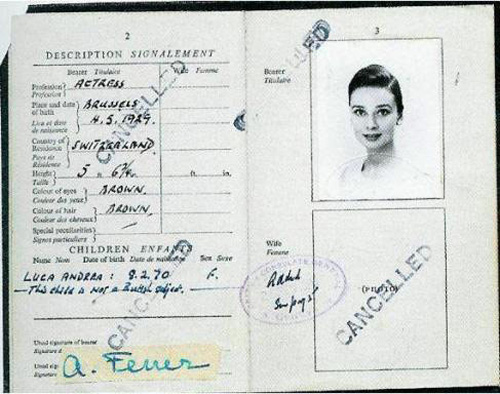 2
DESCRIPTION SIGNALEMENT
Bearer Titulaire
Wife Femme
Profession
Profession
ACTRESS
Place and date of birth
Lieu et date de naissance
BRUSSELS
4.5.1929.
Country of Residence
Pays de Résidence
SWITZERLAND
Height
Taille
5
ft. in.
Colour of eyes
Couleur des yeux
BROWN.
Colour of hair
Couleur des cheveux
BROWN.
Special peculiarities
Signes particuliers
CHILDREN ENFANTS
Name Nom Date of birth Date de naissance Sex Sexe
LUCA ANDREA: 8.2.70
This child is not a British subject.
Usual signature of bearer
Signature d
Usual sig
Signature
A. Ferrer
CANCELLED
CANCELLED
3
Bearer
Titulaire
CANCELLED
Wife
Femme
(PHOTO)
CANCELLED